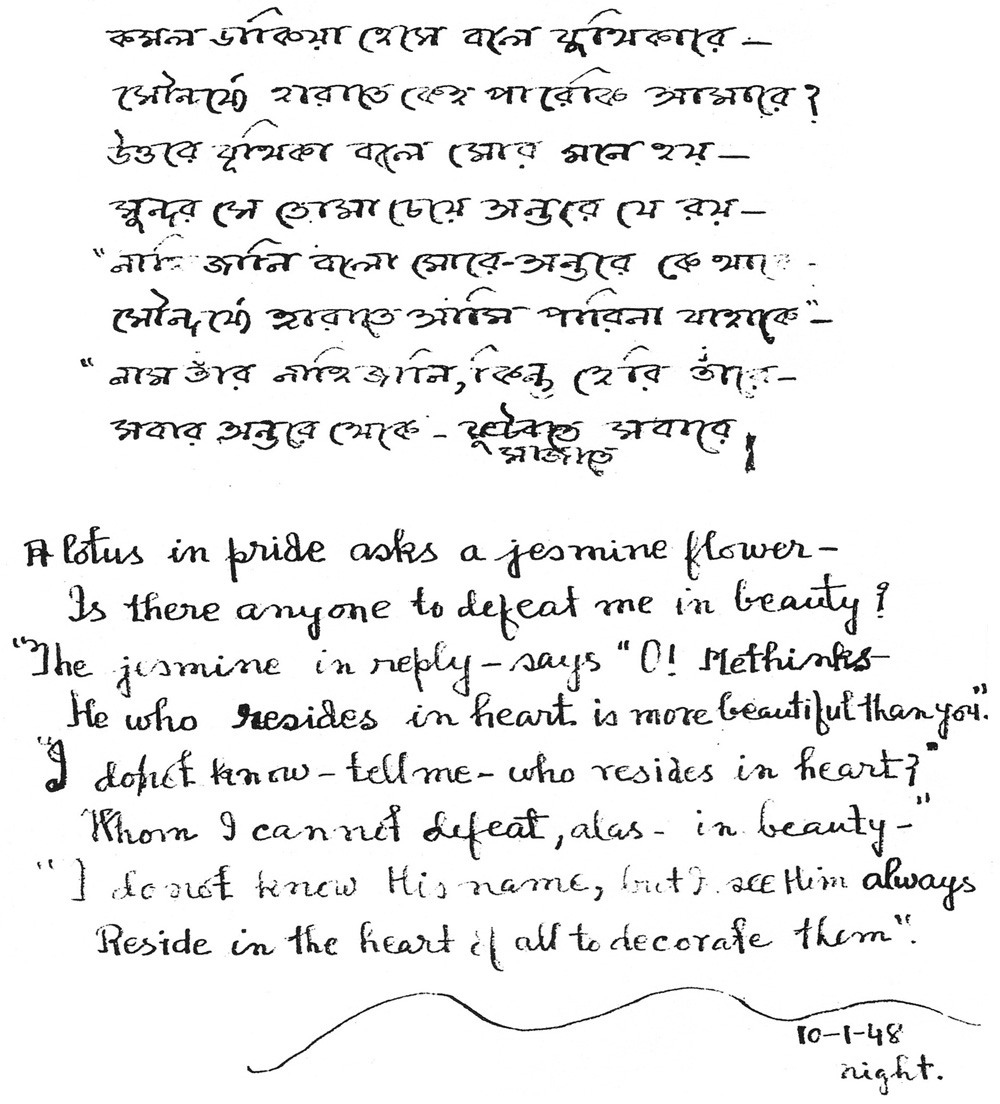 কমল ডাকিয়া হেসে বলে যুথিকারে —
সৌন্দর্যে হারাতে কেহ পারেকি আমারে?
উত্তরে যূথিকা বলে মোর মনে হয় —
সুন্দর সে তোমা চেয়ে অন্তরে যে রয় —
"নাহি জানি বলো মোরে-অন্তরে কে থাকে -
সৌন্দর্যে হারাতে আমি পারিনা যাহাকে" —
"নাম তাঁর নাহি জানি, কিন্তু হেরি তাঁরে —
সবার অন্তরে থেকে - সবারে।
সাজাতে
A lotus in pride asks a jesmine flower –
Is there anyone to defeat me in beauty?
"The jesmine in reply – says "O! Methinks –
He who resides in heart is more beautiful than you".
"I donot know – tell me – who resides in heart?"
Whom I cannot defeat, alas - in beauty –"
"I do not know His name, but I see Him always
Reside in the heart of all to decorate them".
10-1-48
night.